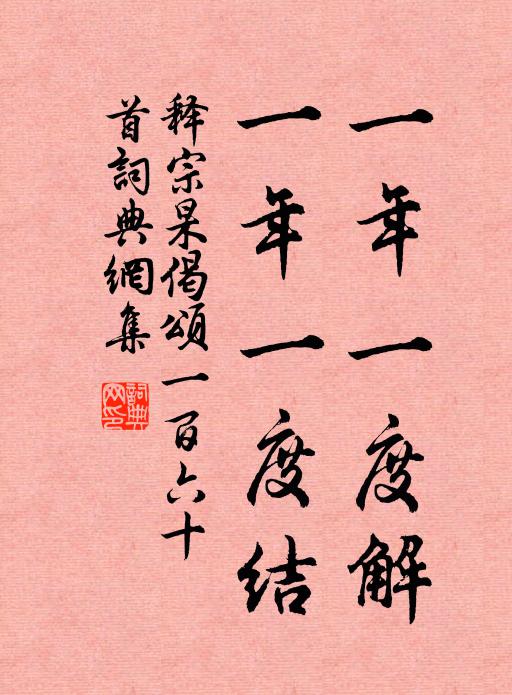 一年一度解
一年一度结
释宗杲偈颂一百六十
首詞典網集
詞典网印